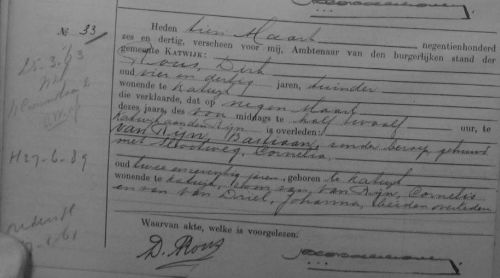 No 33
Heden tien Maart negentienhonderd
zes en dertig, verscheen voor mij, Ambtenaar van den burgerlijken stand der
gemeente KATWIJK:
Rous, Dirk
oud vier en dertig jaren, tuinder
wonende te Katwijk
die verklaarde, dat op negen Maart
dezes jaars, des voor middags te half twaalf uur, te
Katwijk aan den Rijn is overleden:
van Rijn, Bastiaan, zonder beroep, gehuwd
met Slootweg, Cornelia,
oud twee en zeventig jaren, geboren te Katwijk
wonende te Katwijk, zoon van van Rijn, Cornelis
en van van Driel, Johanna, beiden overleden
Waarvan akte, welke is voorgelezen.
D. Rous
25.3.
H27-6-89